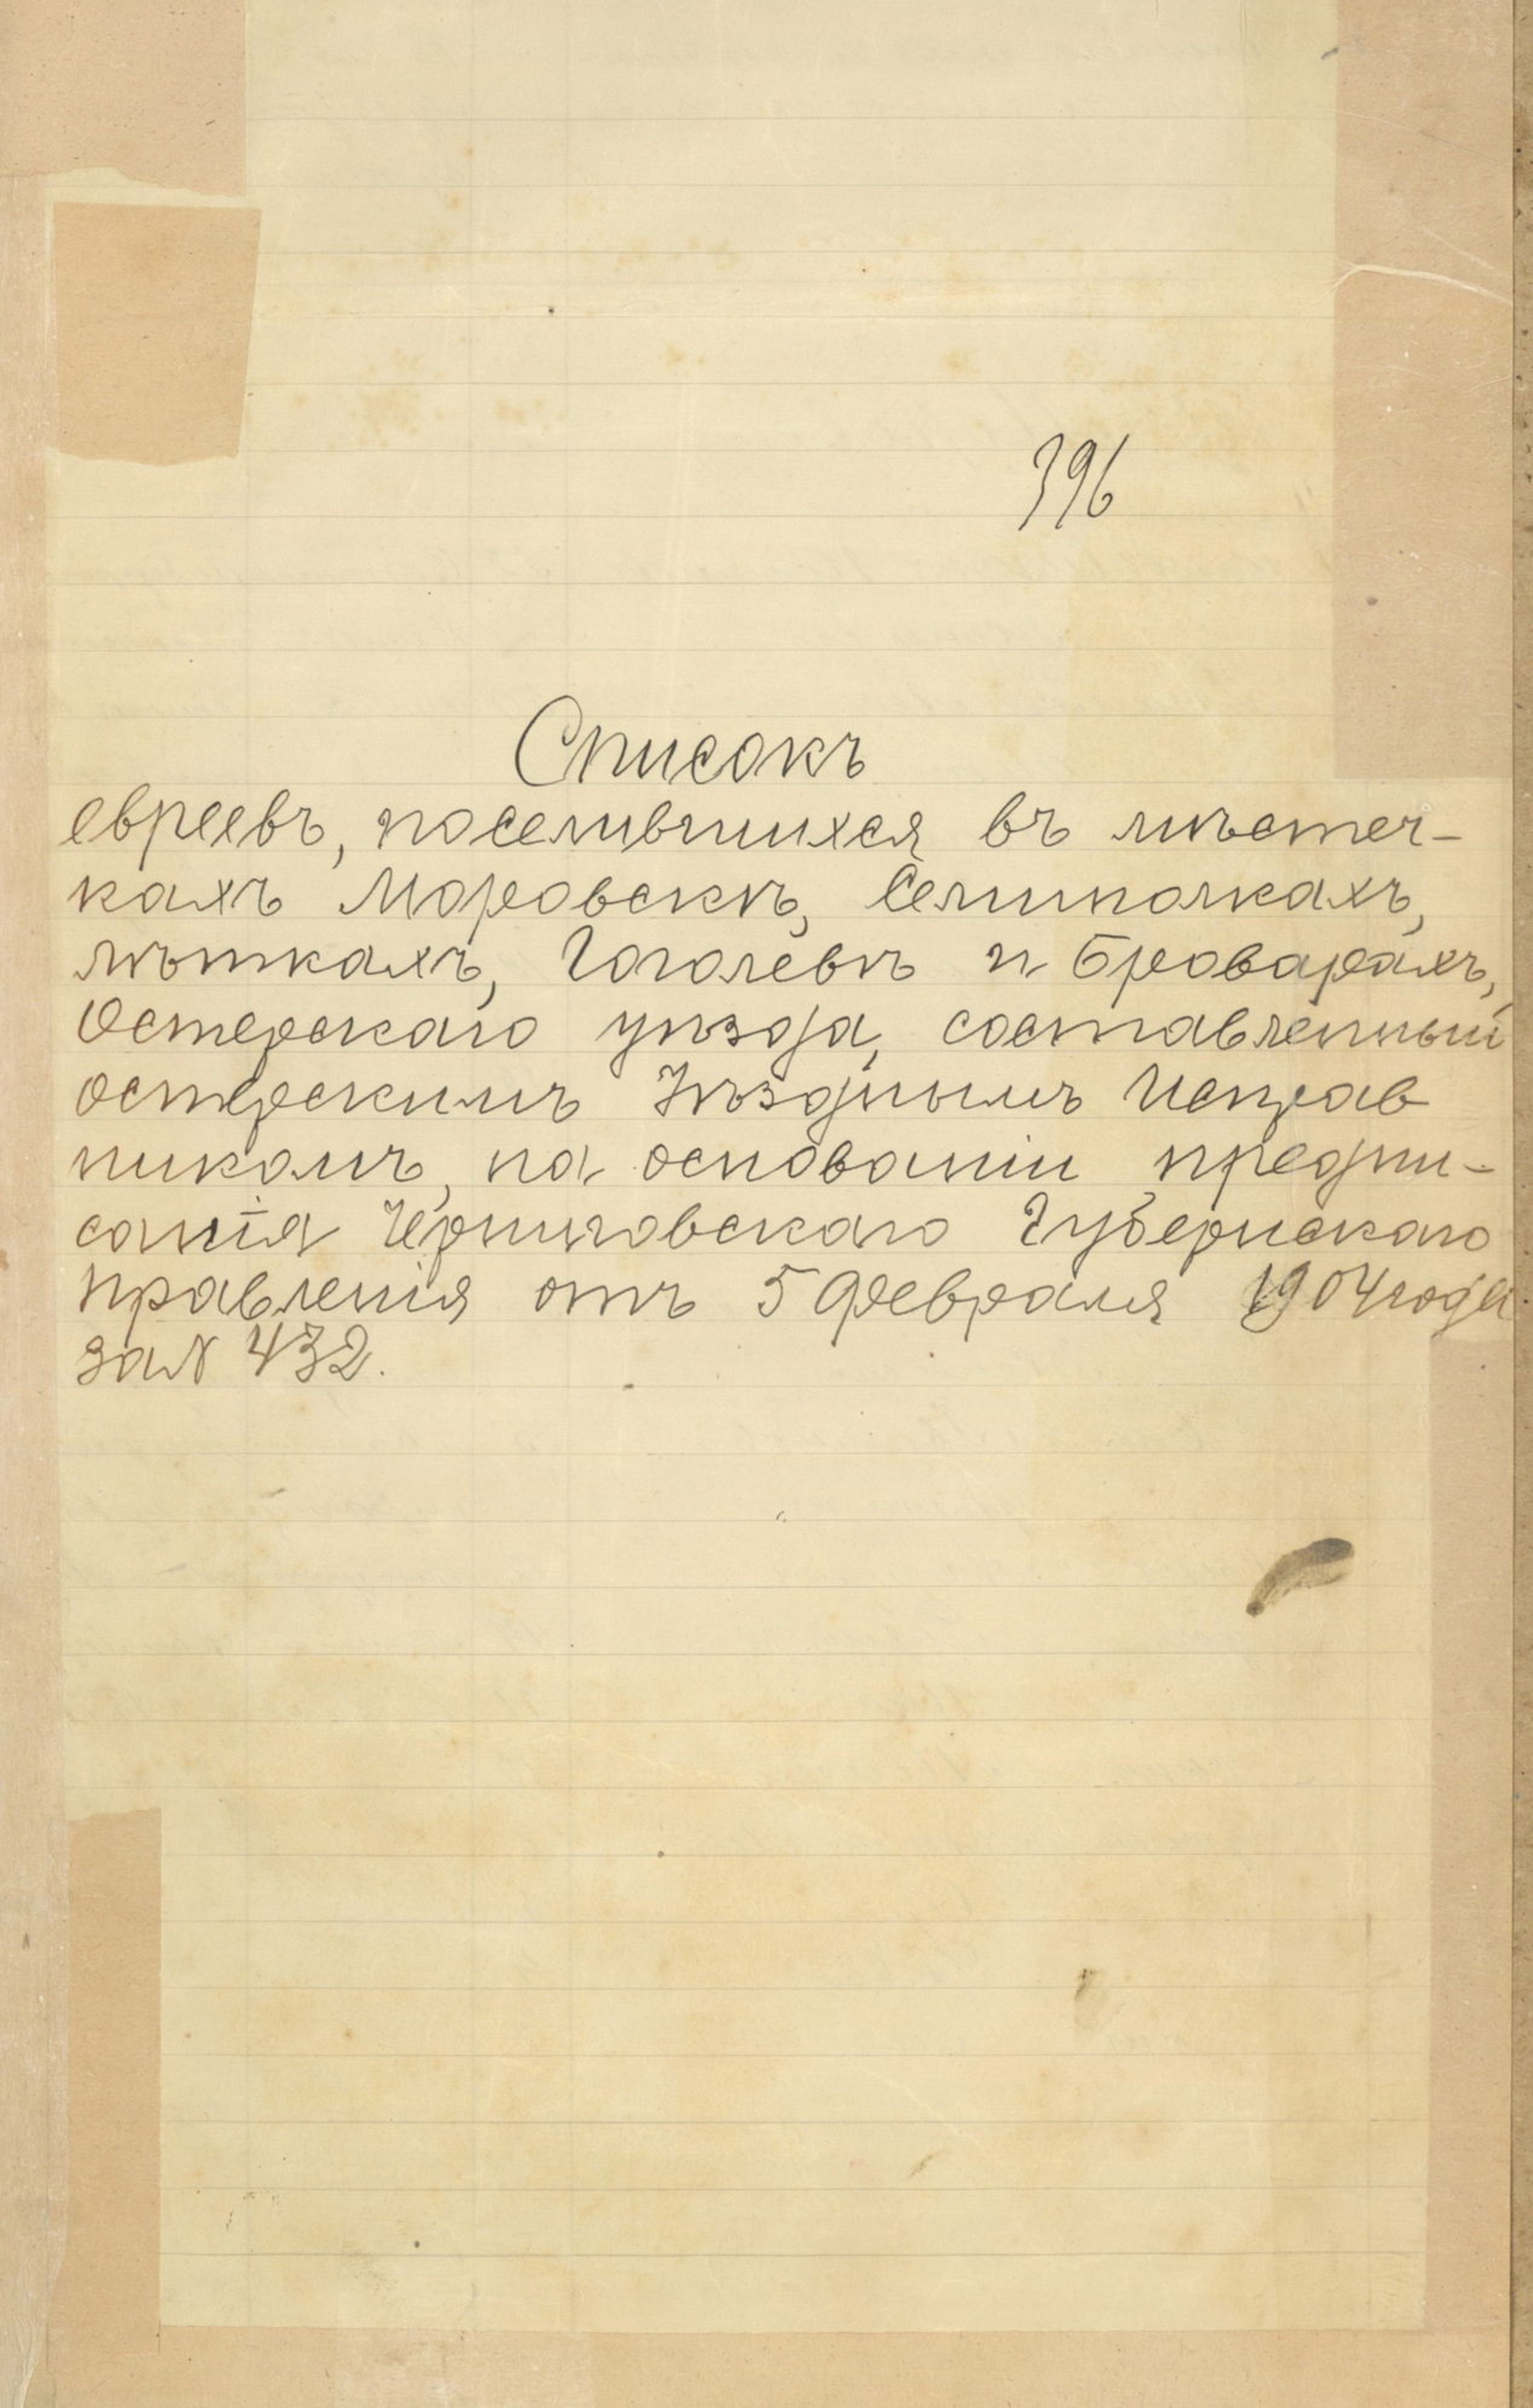 396
Списокъ
евреевъ, поселившихся въ мѣстеч-
кахъ Моровскѣ, Семиполкахъ,
Лѣткахъ, Гоголевѣ и Броварахъ,
Остерскаго уѣзда, составленный
Остерскимъ Уѣзднымъ Исправ
никомъ, на основаніи предпи-
санія Черниговскаго Губернскаго
Правленія отъ 5 Февраля 1904 года
за № 432.